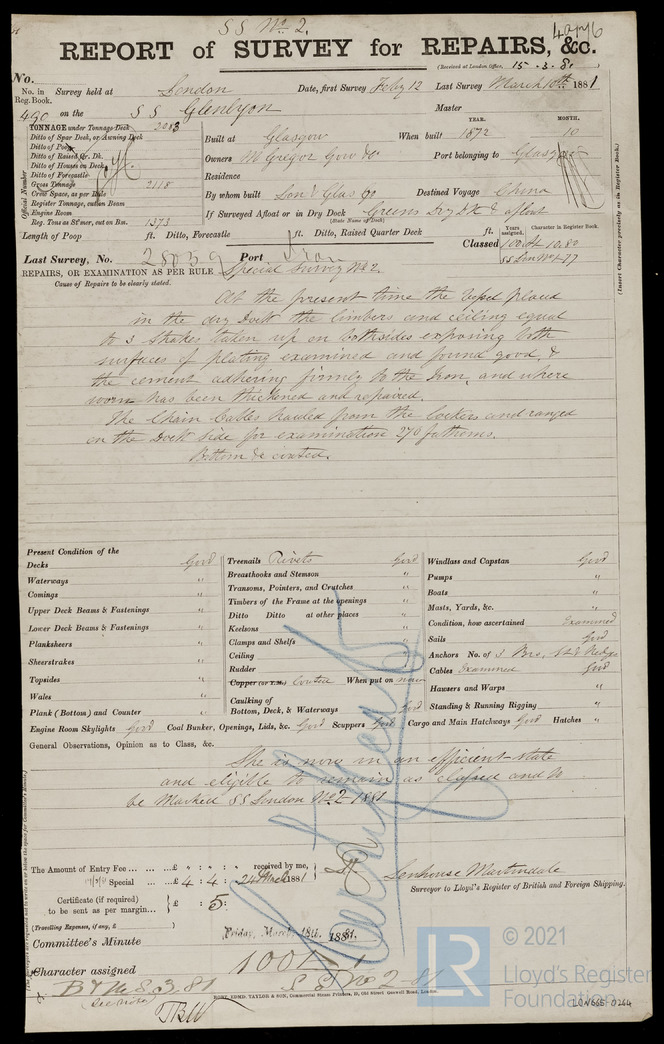 SS No 2.
REPORT of SURVEY for REPAIRS, &c.
(Received at London Office, 15.3.81
No.
No. in Reg. Book. Survey held at London Date, first Survey Feby 12 Last Survey March 10th 1881
490 on the SS Glenlyon Master
TONNAGE under Tonnage Deck 2083
Ditto of Spar Deck, or Awning Deck
Ditto of Poop
Ditto of Raised Qr. Dk.
Ditto of Houses on Deck
Ditto of Forecastle
Gross Tonnage 2118
Crew Space, as per Rule
Register Tonnage, cut on Beam
Engine Room
Reg. Tons as St'mer, cut on Bm. 1373
Official Number
Built at Glasgow When built YEAR. 1872 MONTH. 10
Owners McGregor Gow & Co Port belonging to Glasgow
Residence
By whom built Lon & Glas Co Destined Voyage China
If Surveyed Afloat or in Dry Dock Greens Dry Dk & afloat
(State Name of Dock)
Length of Poop ft. Ditto, Forecastle ft. Ditto, Raised Quarter Deck ft.
Classed Years assigned. Character in Register Book.
100 A1 10.80
SS Lon No 1-77
(Insert Character precisely as in Register Book.)
Last Survey, No. 28039 Port Iron
REPAIRS, OR EXAMINATION AS PER RULE Special Survey No 2.
Cause of Repairs to be clearly stated.
At the present time the Vessel placed
in the dry Dock the limbers and ceiling equal
to 3 Strakes taken up on both sides exposing both
surfaces of plating examined and found good, &
the cement adhering firmly to the Iron, and where
worn has been thickened and repaired.
The Chain Cables hauled from the lockers and ranged
on the Dock side for examination 270 fathoms.
Bottom &c coated.
Present Condition of the
Decks Good
Waterways "
Comings "
Upper Deck Beams & Fastenings "
Lower Deck Beams & Fastenings "
Planksheers "
Sheerstrakes "
Topsides "
Wales "
Plank (Bottom) and Counter "
Treenails Rivets Good
Breasthooks and Stemson "
Transoms, Pointers, and Crutches "
Timbers of the Frame at the openings "
Ditto Ditto at other places "
Keelsons "
Clamps and Shelfs "
Ceiling "
Rudder "
Copper (or Y.M.) Coated When put on now
Caulking of Bottom, Deck, & Waterways Good
Windlass and Capstan Good
Pumps "
Boats "
Masts, Yards, &c. "
Condition, how ascertained Examined
Sails Good
Anchors No. of 3 Brs, St & Kedge
Cables Examined Good
Hawsers and Warps "
Standing & Running Rigging "
Engine Room Skylights Good Coal Bunker, Openings, Lids, &c. Good Scuppers Good Cargo and Main Hatchways Good Hatches "
General Observations, Opinion as to Class, &c.
She is now in an efficient state
and eligible to remain as classed and to
be Marked SS London No 2 1881
The Amount of Entry Fee £ " : " : " received by me,
Special £ 4 : 4 : 24 March 1881
Certificate (if required) to be sent as per margin £ : 5 :
(Travelling Expenses, if any, £
Senhouse Martindale
Surveyor to Lloyd's Register of British and Foreign Shipping.
Committee's Minute Friday, March 18th 1881.
Character assigned 100 A1
SS No 2-81
B & M S 3.81
TBW
ROBT, EDMD. TAYLOR & SON, Commercial Steam Printers, 19, Old Street, Goswell Road, London.
LR
© 2021
Lloyd's Register
Foundation
LON665-0244